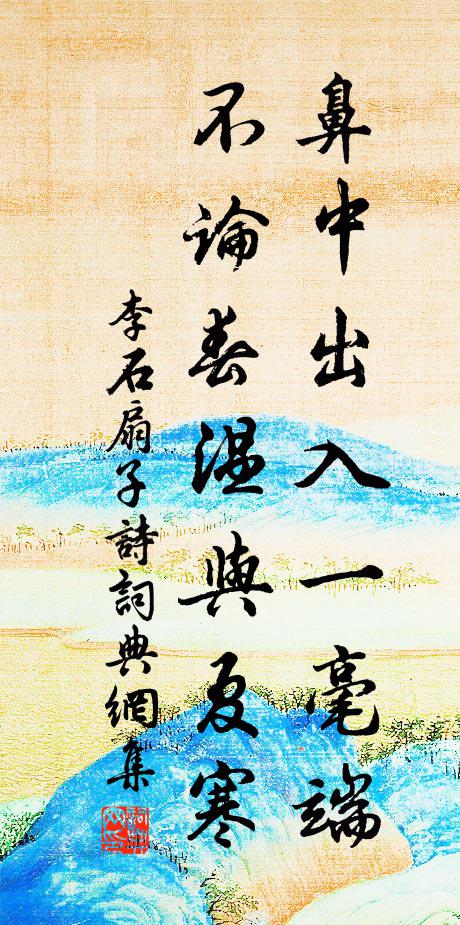 鼻中出入一毫端
不論春溫與夏寒
李石扇子詩詞典網集